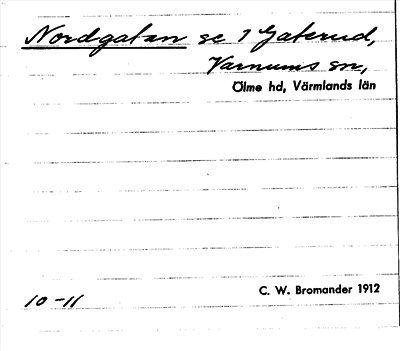 Nordgatan se 1 Gaterud,
Varnums sn,
Ölme hd, Värmlands län
C. W. Bromander 1912
10-11